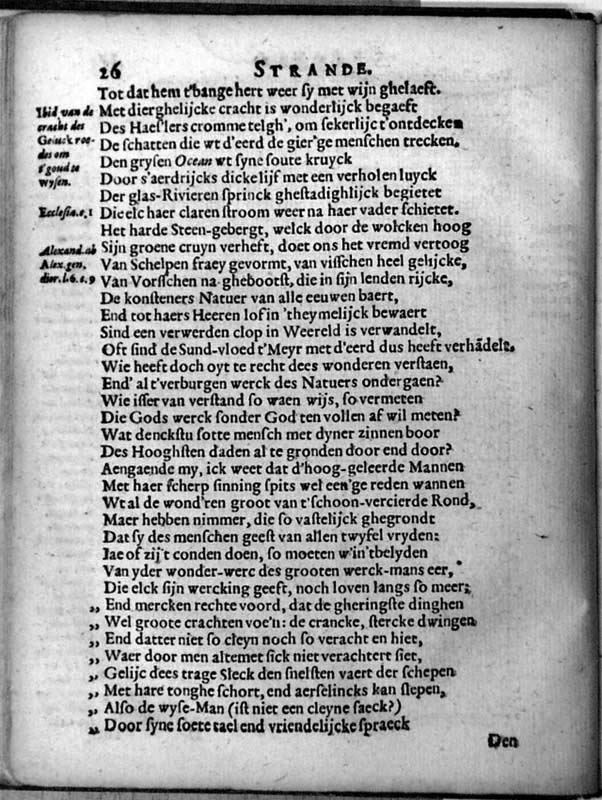 26 STRANDE.
Tot dat hem t'bange hert weer sy met wijn ghelaeft.
Met dierghelijcke cracht is wonderlijck begaeft
Des Haes'lers cromme telgh', om sekerlijc t'ontdecken
De schatten die wt d'eerd de gier'ge menschen trecken.
Den grysen Ocean wt syne soute kruyck
Door s'aerdrijcks dickelijf met een verholen luyck
Der glas-Rivieren sprinck ghestadighlijck begietet
Die elc haer claren stroom weer na haer vader schietet.
Het harde Steen-gebergt, welck door de wolcken hoog
Sijn groene cruyn verheft, doet ons het vremd vertoog
Van Schelpen fraey gevormt, van visschen heel gelijcke,
Van Vorsschen na-ghebootst, die in sijn lenden rijcke,
De konsteners Natuer van alle eeuwen baert,
End tot haers Heeren lof in 'theymelijck bewaert
Sind een verwerden clop in Weereld is verwandelt,
Oft sind de Sund-vloed t'Meyr met d'eerd dus heeft verhādelt.
Wie heeft doch oyt te recht dees wonderen verstaen,
End' al t'verburgen werck des Natuers ondergaen?
Wie isser van verstand so waen wijs, so vermeten
Die Gods werck sonder God ten vollen af wil meten?
Wat denckstu sotte mensch met dyner zinnen boor
Des Hooghsten daden al te gronden door end door?
Aengaende my, ick weet dat d'hoog-geleerde Mannen
Met haer scherp sinning spits wel een'ge reden wannen
Wt al de wond'ren groot van t'schoon-vercierde Rond,
Maer hebben nimmer, die so vastelijck ghegrondt
Dat sy des menschen geest van allen twyfel vryden:
Jae of zij't conden doen, so moeten w'in'tbelyden
Van yder wonder-werc des grooten werck-mans eer,
Die elck sijn wercking geeft, noch loven langs so meer;
„ End mercken rechte voord, dat de gheringste dinghen
„ Wel groote crachten voe'n: de crancke, stercke dwingen
„ End datter niet so cleyn noch so veracht en hiet,
„ Waer door men altemet sick niet verachtert siet,
„ Gelijc dees trage Sleck den snelsten vaert der schepen
„ Met hare tonghe schort, end aerselincks kan slepen,
„ Also de wyse-Man (ist niet een cleyne saeck?)
„ Door syne soete tael end vriendelijcke spraeck
Den
Ibid van de
cracht des
roe-
des om
t'goud te
wysen.
Ecclesia. c. 1
Alexand. ab
Alex. gen.
dier. l. 6. c. 9